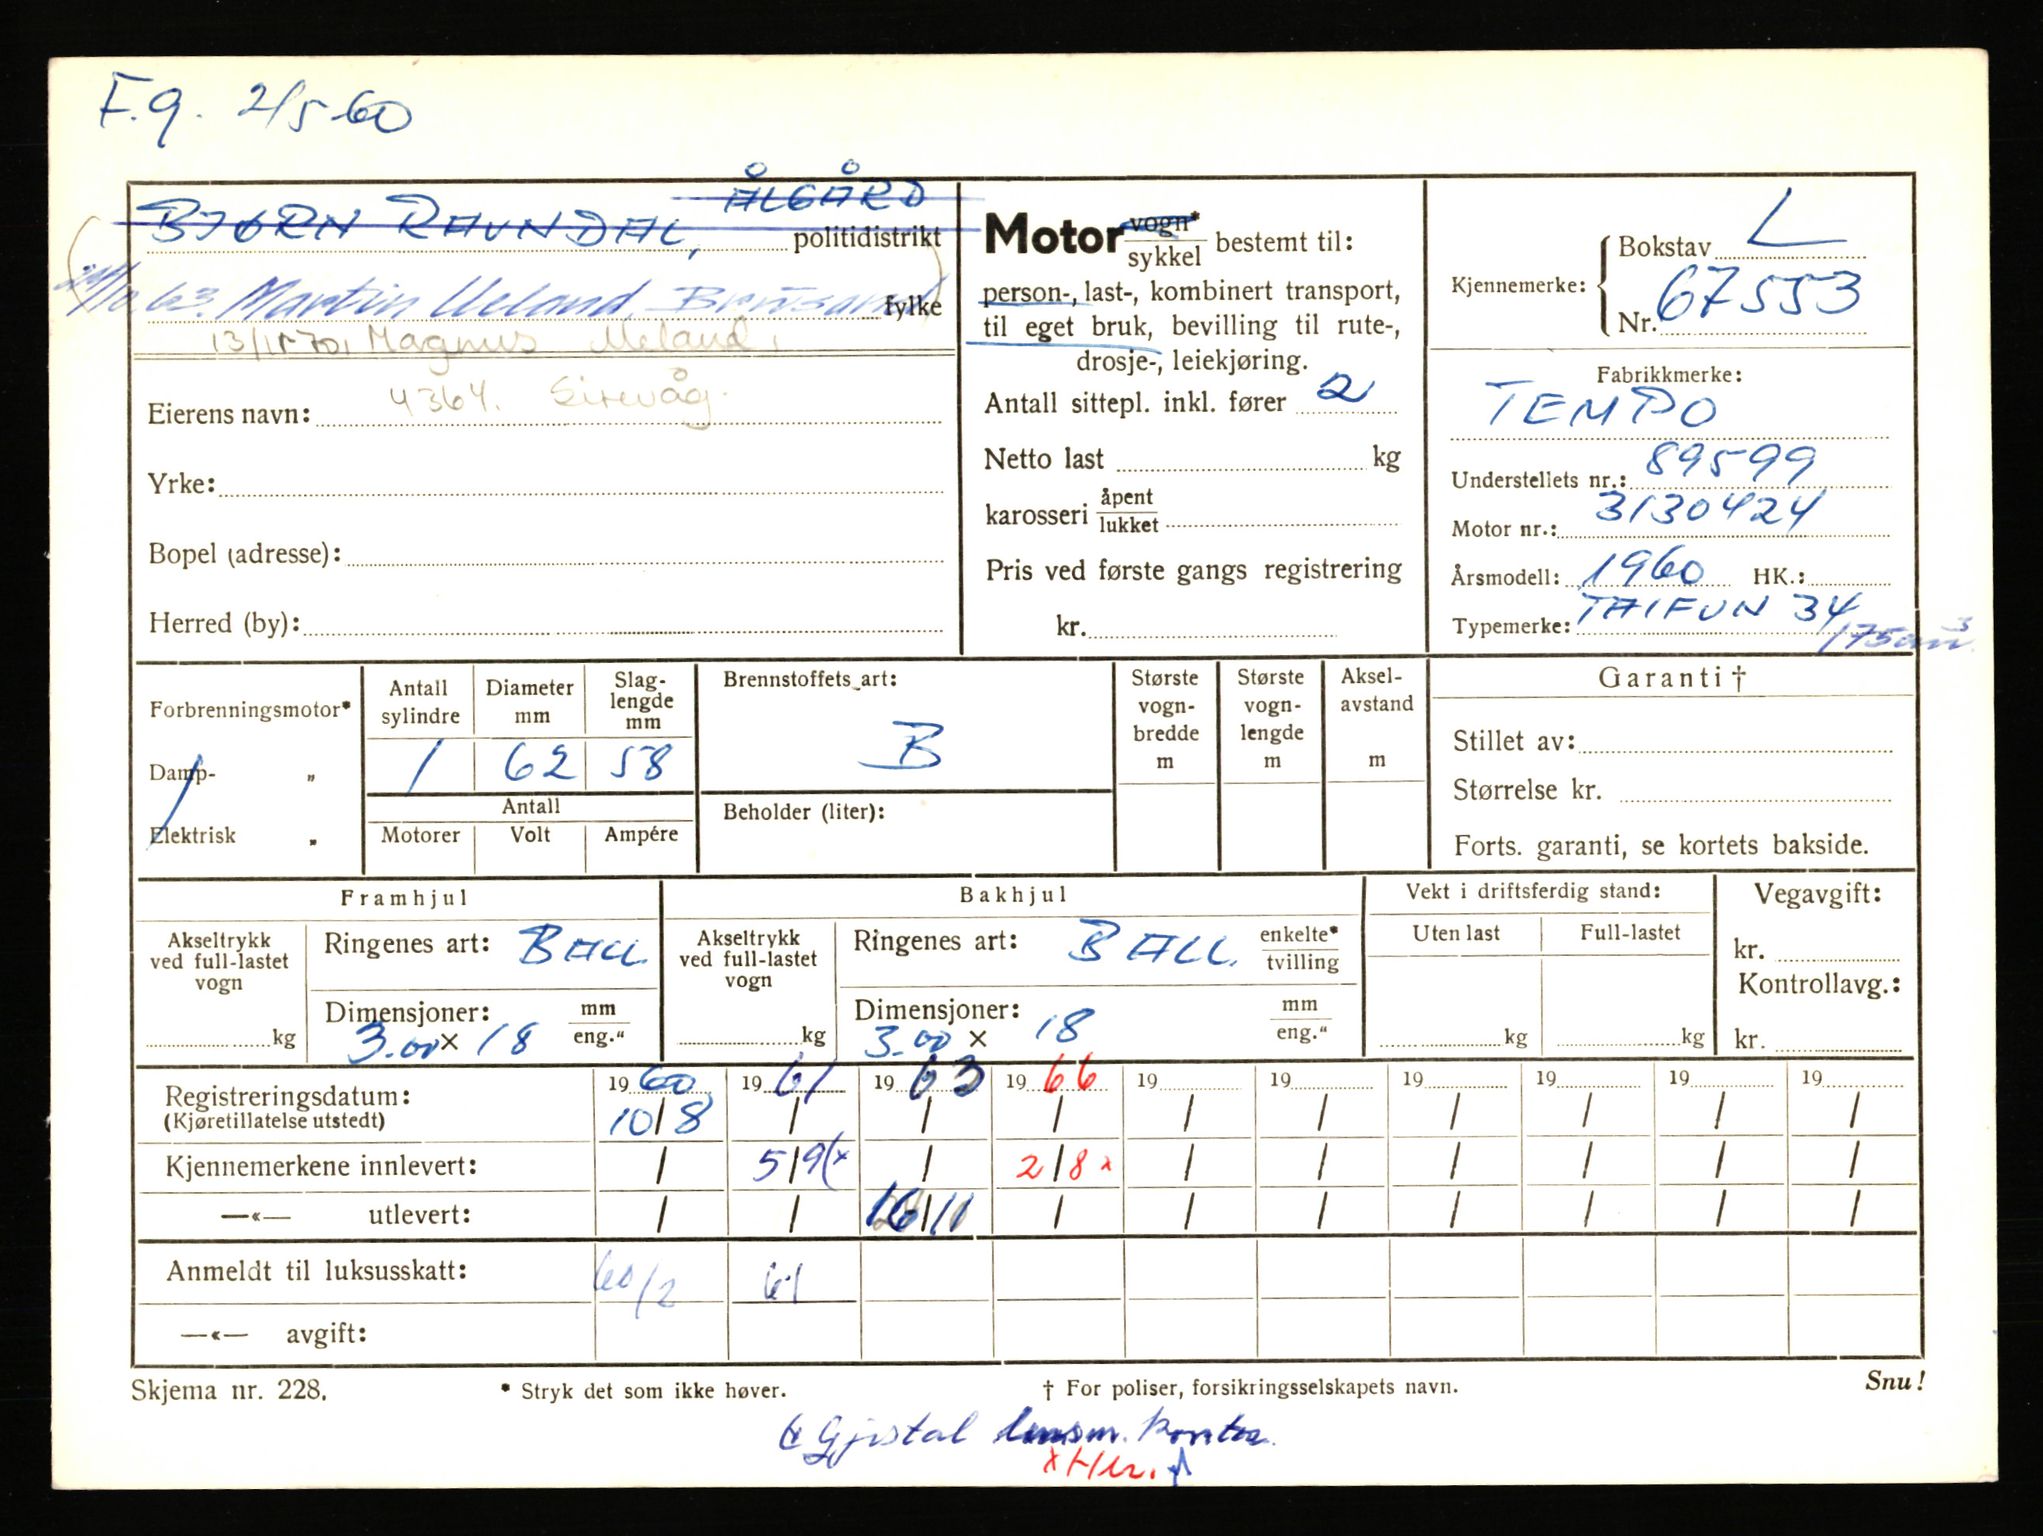 F.g. 2/5-60
ÅLGÅRD
BJØRN RAUNDAL, politidistrikt
63. Martin Ueland, Brusand fylke
Magnus Ueland,
4364. Sirevåg.
Eierens navn:
Yrke:
Bopel (adresse):
Herred (by):
Motor vogn* / sykkel bestemt til:
person-, last-, kombinert transport,
til eget bruk, bevilling til rute-,
drosje-, leiekjøring.
Antall sittepl. inkl. fører 2
Netto last kg
karosseri åpent / lukket
Pris ved første gangs registrering
kr.
Kjennemerke: Bokstav L
Nr. 67553
Fabrikkmerke:
TEMPO
Understellets nr.: 89599
Motor nr.: 3130424
Årsmodell: 1960 HK.:
Typemerke: TAIFUN 34
/175cm3
Forbrenningsmotor*
Damp- "
Elektrisk "
Antall sylindre 1
Diameter mm 62
Slag-lengde mm 58
Antall
Motorer Volt Ampére
Brennstoffets art:
B
Beholder (liter):
Største vogn-bredde m
Største vogn-lengde m
Aksel-avstand m
Garanti †
Stillet av:
Størrelse kr.
Forts. garanti, se kortets bakside.
Framhjul
Akseltrykk ved full-lastet vogn kg
Ringenes art: BALL.
Dimensjoner: mm / eng."
3.00 x 18
Bakhjul
Akseltrykk ved full-lastet vogn kg
Ringenes art: BALL. enkelte* / tvilling
Dimensjoner: mm / eng."
3.00 x 18
Vekt i driftsferdig stand:
Uten last Full-lastet
kg kg
Vegavgift:
kr.
Kontrollavg.:
kr.
Registreringsdatum: 1960 1961 1963 1966 19 19 19 19 19 19
(Kjøretillatelse utstedt) 10/8 / / / / / / / / /
Kjennemerkene innlevert: / 5/9(x / 2/8 x / / / / / /
—«— utlevert: / / 16/11 / / / / / / /
Anmeldt til luksusskatt: 60/2 61
—«— avgift:
Skjema nr. 228.
* Stryk det som ikke høver.
† For poliser, forsikringsselskapets navn.
Snu!
Gjestal lensm. kontor.